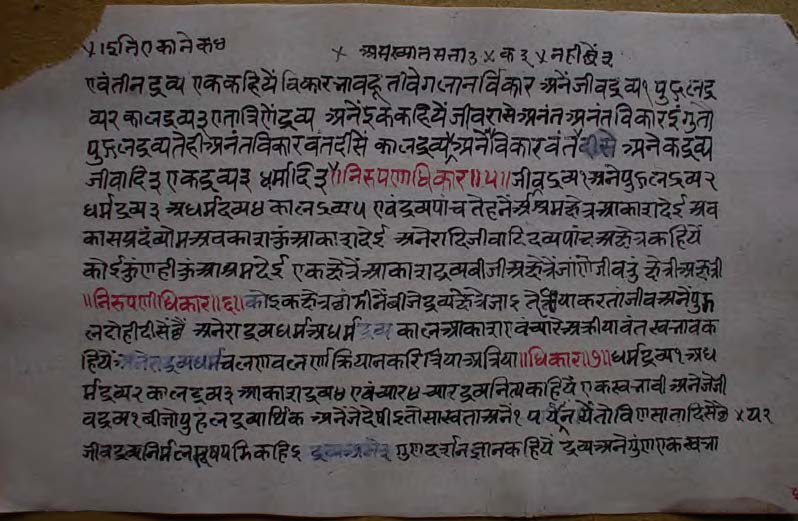 × इति एकानेक ४ × असख्यात सता ३ × क ३ × नही छें ३
एवं तीन द्रव्य एक कहियें विकारभाव दूतावेगलानर्विकार अनें जीवद्रव्य १ पुद्गलद्र
व्य २ कालद्रव्य ३ एतात्रिणें द्रव्य अनेंइकेक कहियें जीवरासे अनंत अनंत विकारइं गुतो
पुद्गलद्रव्य तेही अनंत विकारवंत दीसें कालद्रव्य अनें विकारवंत दीसे अनेकद्रव्य
जीवादि ३ एकद्रव्य ३ धर्मादि ३ ॥ निरुपणाधिकार ॥५॥ जीवद्रव्य १ अने पुद्गलद्रव्य २
धर्मद्रव्य ३ अधर्मद्रव्य ४ कालद्रव्य ५ एवं द्रव्य पांच तेहनें आश्रमक्षेत्र आकाश देई अव
कासप्रदं व्योम अवकाश कुं आकाश देई अनेरा दि जीवादि द्रव्य पांच अक्षेत्र कहियें
कोई कुंण ही कुं आश्रम देई एक क्षेत्रें आकाशद्रव्य बीजी अक्षेत्रें जांणे जीव तुं क्षेत्री अक्षेत्री
॥ निरुपणाधिकार ॥६॥ कोइक क्षेत्र ठांमीनें बीजे द्रव्य क्षेत्रे जाइ ते क्रिया करतां जीव अनें पुद्ग
ल दोही दीसे छें अनेरा द्रव्य धर्म अधर्म द्रव्य काल आकाश एवं च्यारे अक्रीयावंत स्वभाव क
हियें अनेरा द्रव्य धर्म चलण वलण क्रिया न करि त्रिया अत्रिया ॥ धिकार ॥७॥ धर्मद्रव्य १ अध
र्मद्रव्य २ कालद्रव्य ३ आकाशद्रव्य ४ एवं च्यार ४ च्यार द्रव्य नित्य कहियें एक स्वभावी अने जे जी
वद्रव्य १ बीजो पुद्गल द्रव्यार्थिक अने जे देषीइ तो सास्वता अने १ पर्यायें तो विणसाता दिसे छे × य २
जीवद्रव्य निर्मल सूषपमि कहिइ द्रव्य अनेरे गुण दर्शन ज्ञान कहियें द्रव्य अने गुंण एक स्वभा